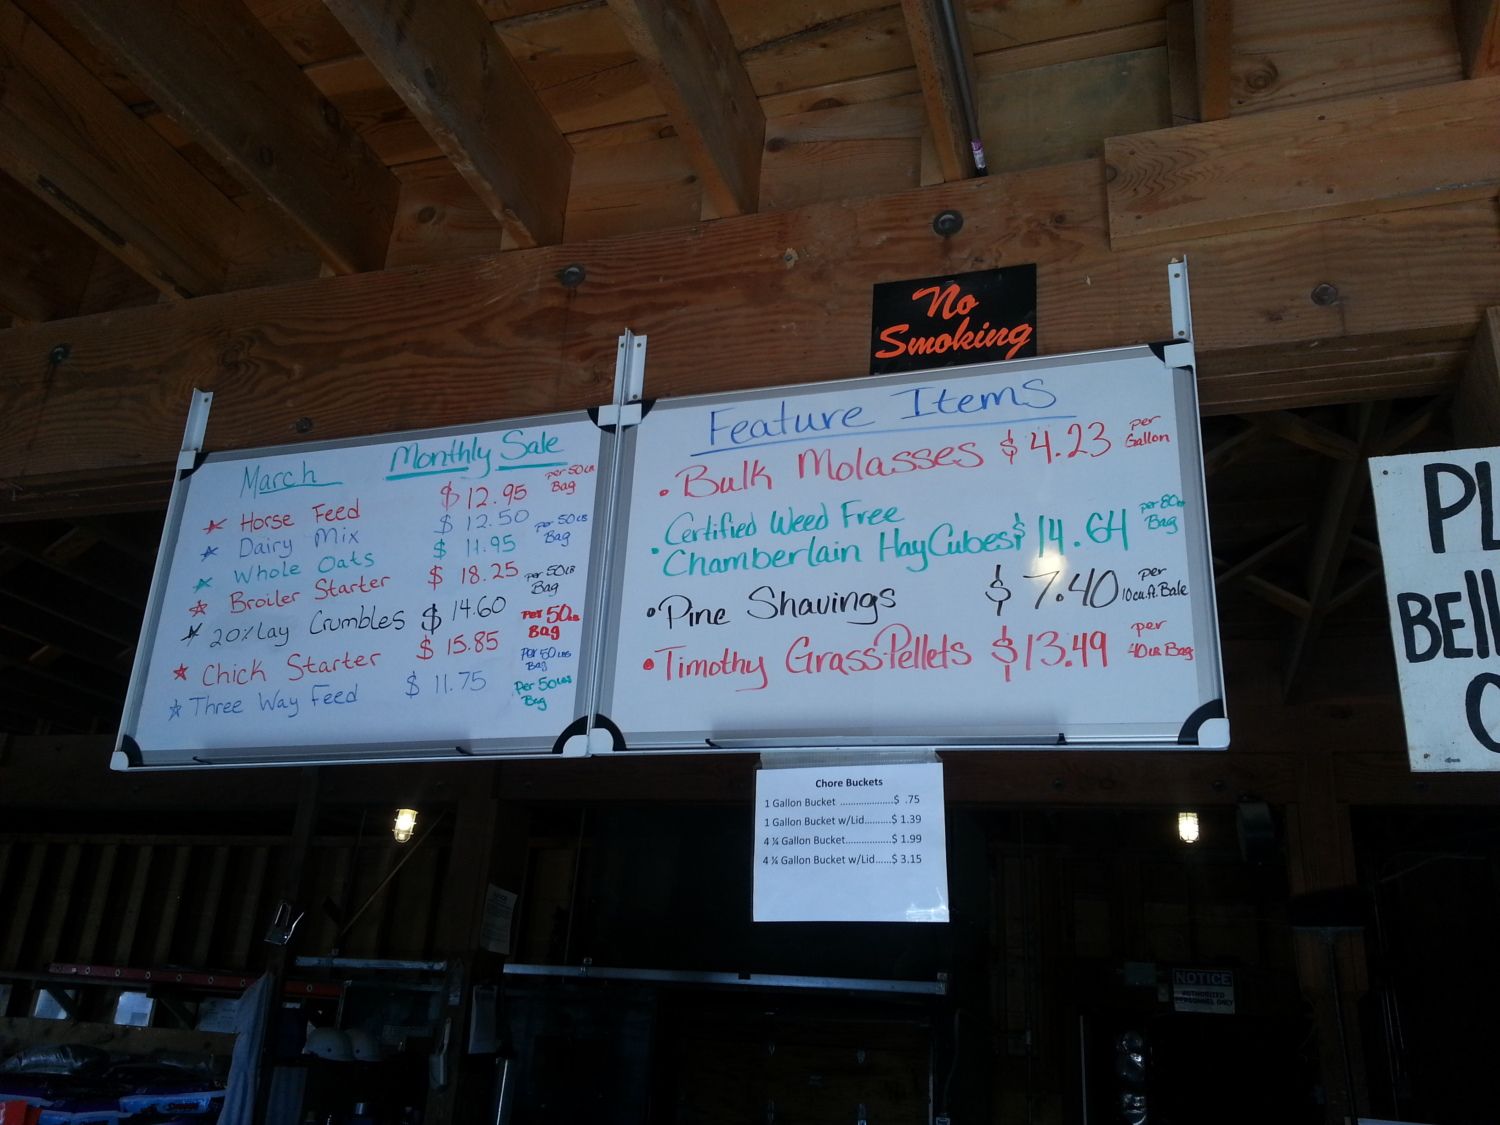 No
Smoking
March Monthly Sale
Horse Feed $12.95 per 50LB Bag
Dairy Mix $12.50 per 50LBS Bag
Whole Oats $11.95
Broiler Starter $18.25 per 50LB Bag
20% Lay Crumbles $14.60 Per 50LBS Bag
Chick Starter $15.85 Per 50LBS Bag
Three Way Feed $11.75 Per 50LBS Bag
Feature Items
• Bulk Molasses $4.23 per Gallon
• Certified Weed Free
Chamberlain Hay Cubes $14.64 per 80LB Bag
• Pine Shavings $7.40 per 10cu.ft. Bale
• Timothy Grass Pellets $13.49 per 40LB Bag
Chore Buckets
1 Gallon Bucket ....................$ .75
1 Gallon Bucket w/Lid..........$ 1.39
4 ¼ Gallon Bucket.................$ 1.99
4 ¼ Gallon Bucket w/Lid......$ 3.15
PL
BEll
NOTICE
AUTHORIZED
PERSONNEL ONLY